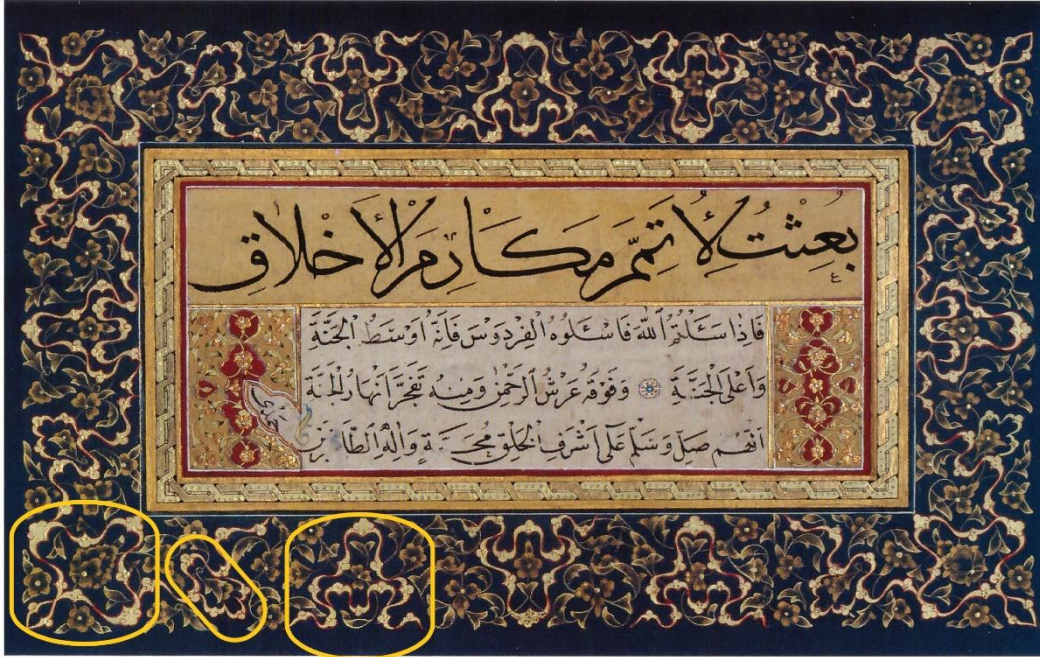 بُعِثْتُ لِأُتَمِّمَ مَكَارِمَ الْأَخْلَاقِ
فَإِذَا سَئَلْتُمُ اللّٰهَ فَاسْئَلُوهُ الْفِرْدَوْسَ فَاِنَّهُ اَوْسَطُ الْجَنَّةِ
وَاَعْلَى الْجَنَّةِ وَفَوْقَهُ عَرْشُ الرَّحْمٰنِ وَمِنْهُ تَفَجَّرَ اَنْهَارُ الْجَنَّةِ
اَللّٰهُمَّ صَلِّ وَسَلِّمْ عَلٰى اَشْرَفِ الْخَلْقِ مُحَمَّدٍ وَاٰلِهِ الطَّاهِرِينَ